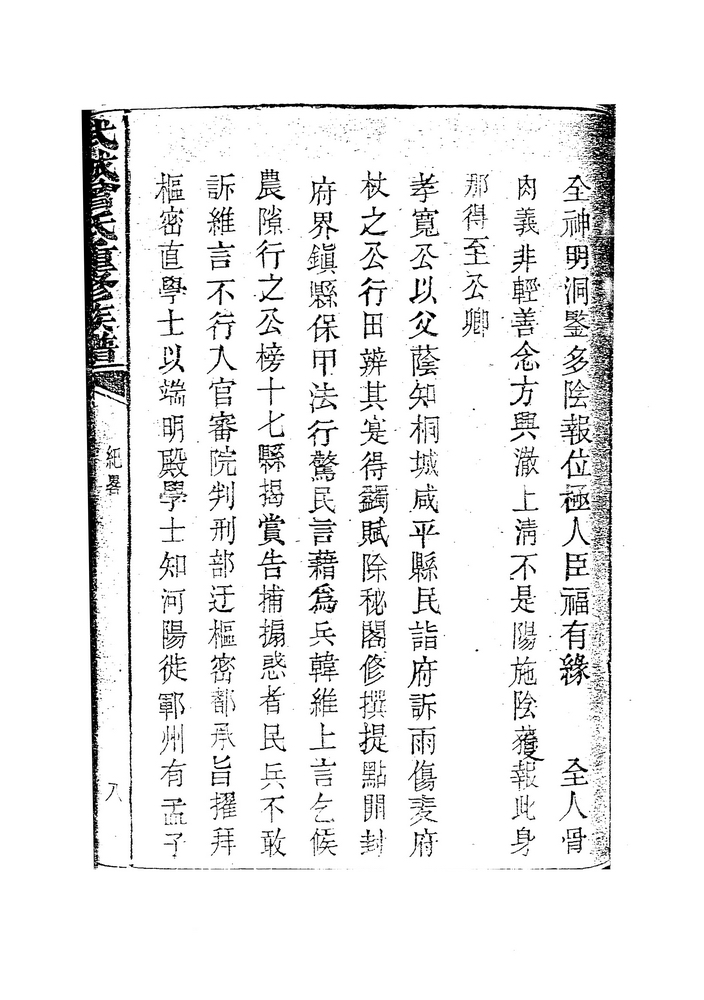 全神明洞鑒多陰報位極人臣福有緣　全人骨
肉義非輕善念方興澈上清不是陽施陰䕶報此身
那得至公卿
孝寬公以父蔭知桐城咸平縣民詣府訴雨傷麦府
杖之公行田辨其寔得蠲賦除秘閣修撰提點開封
府界鎭縣保甲法行驚民言藉爲兵韓維上言乞候
農隙行之公榜十七縣揭賞告捕搧惑者民兵不敢
訴維言不行入官審院判刑部迁樞密都承旨擢拜
樞密直學士以端明殿學士知河陽徙鄆州有孟子
武城曾氏重修族譜
紀畧
八